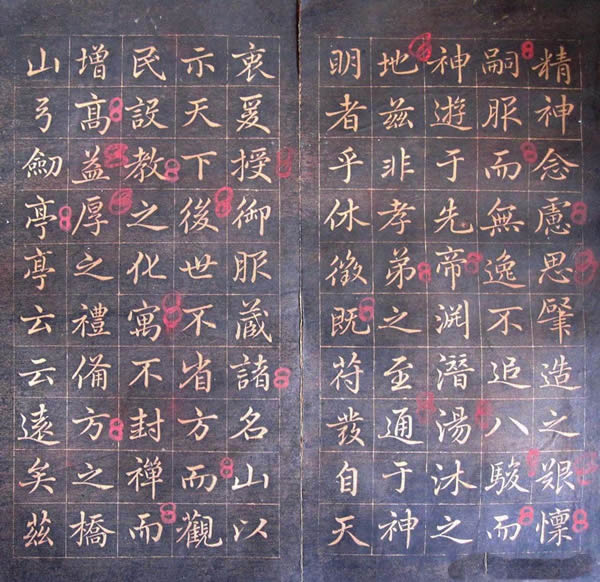 精神念慮思肇造之艱懍
嗣服而無逸不追八駿而
神遊于先帝渊潛湯沐之
地茲非孝弟之至通于神
明者乎休徵既符發自天
衷爰授御服蔵諸名山以
示天下後世不省方而觀
民設教之化寓不封禪而
增髙益厚之禮備方之橋
山弓劒亭亭云云遠矣茲